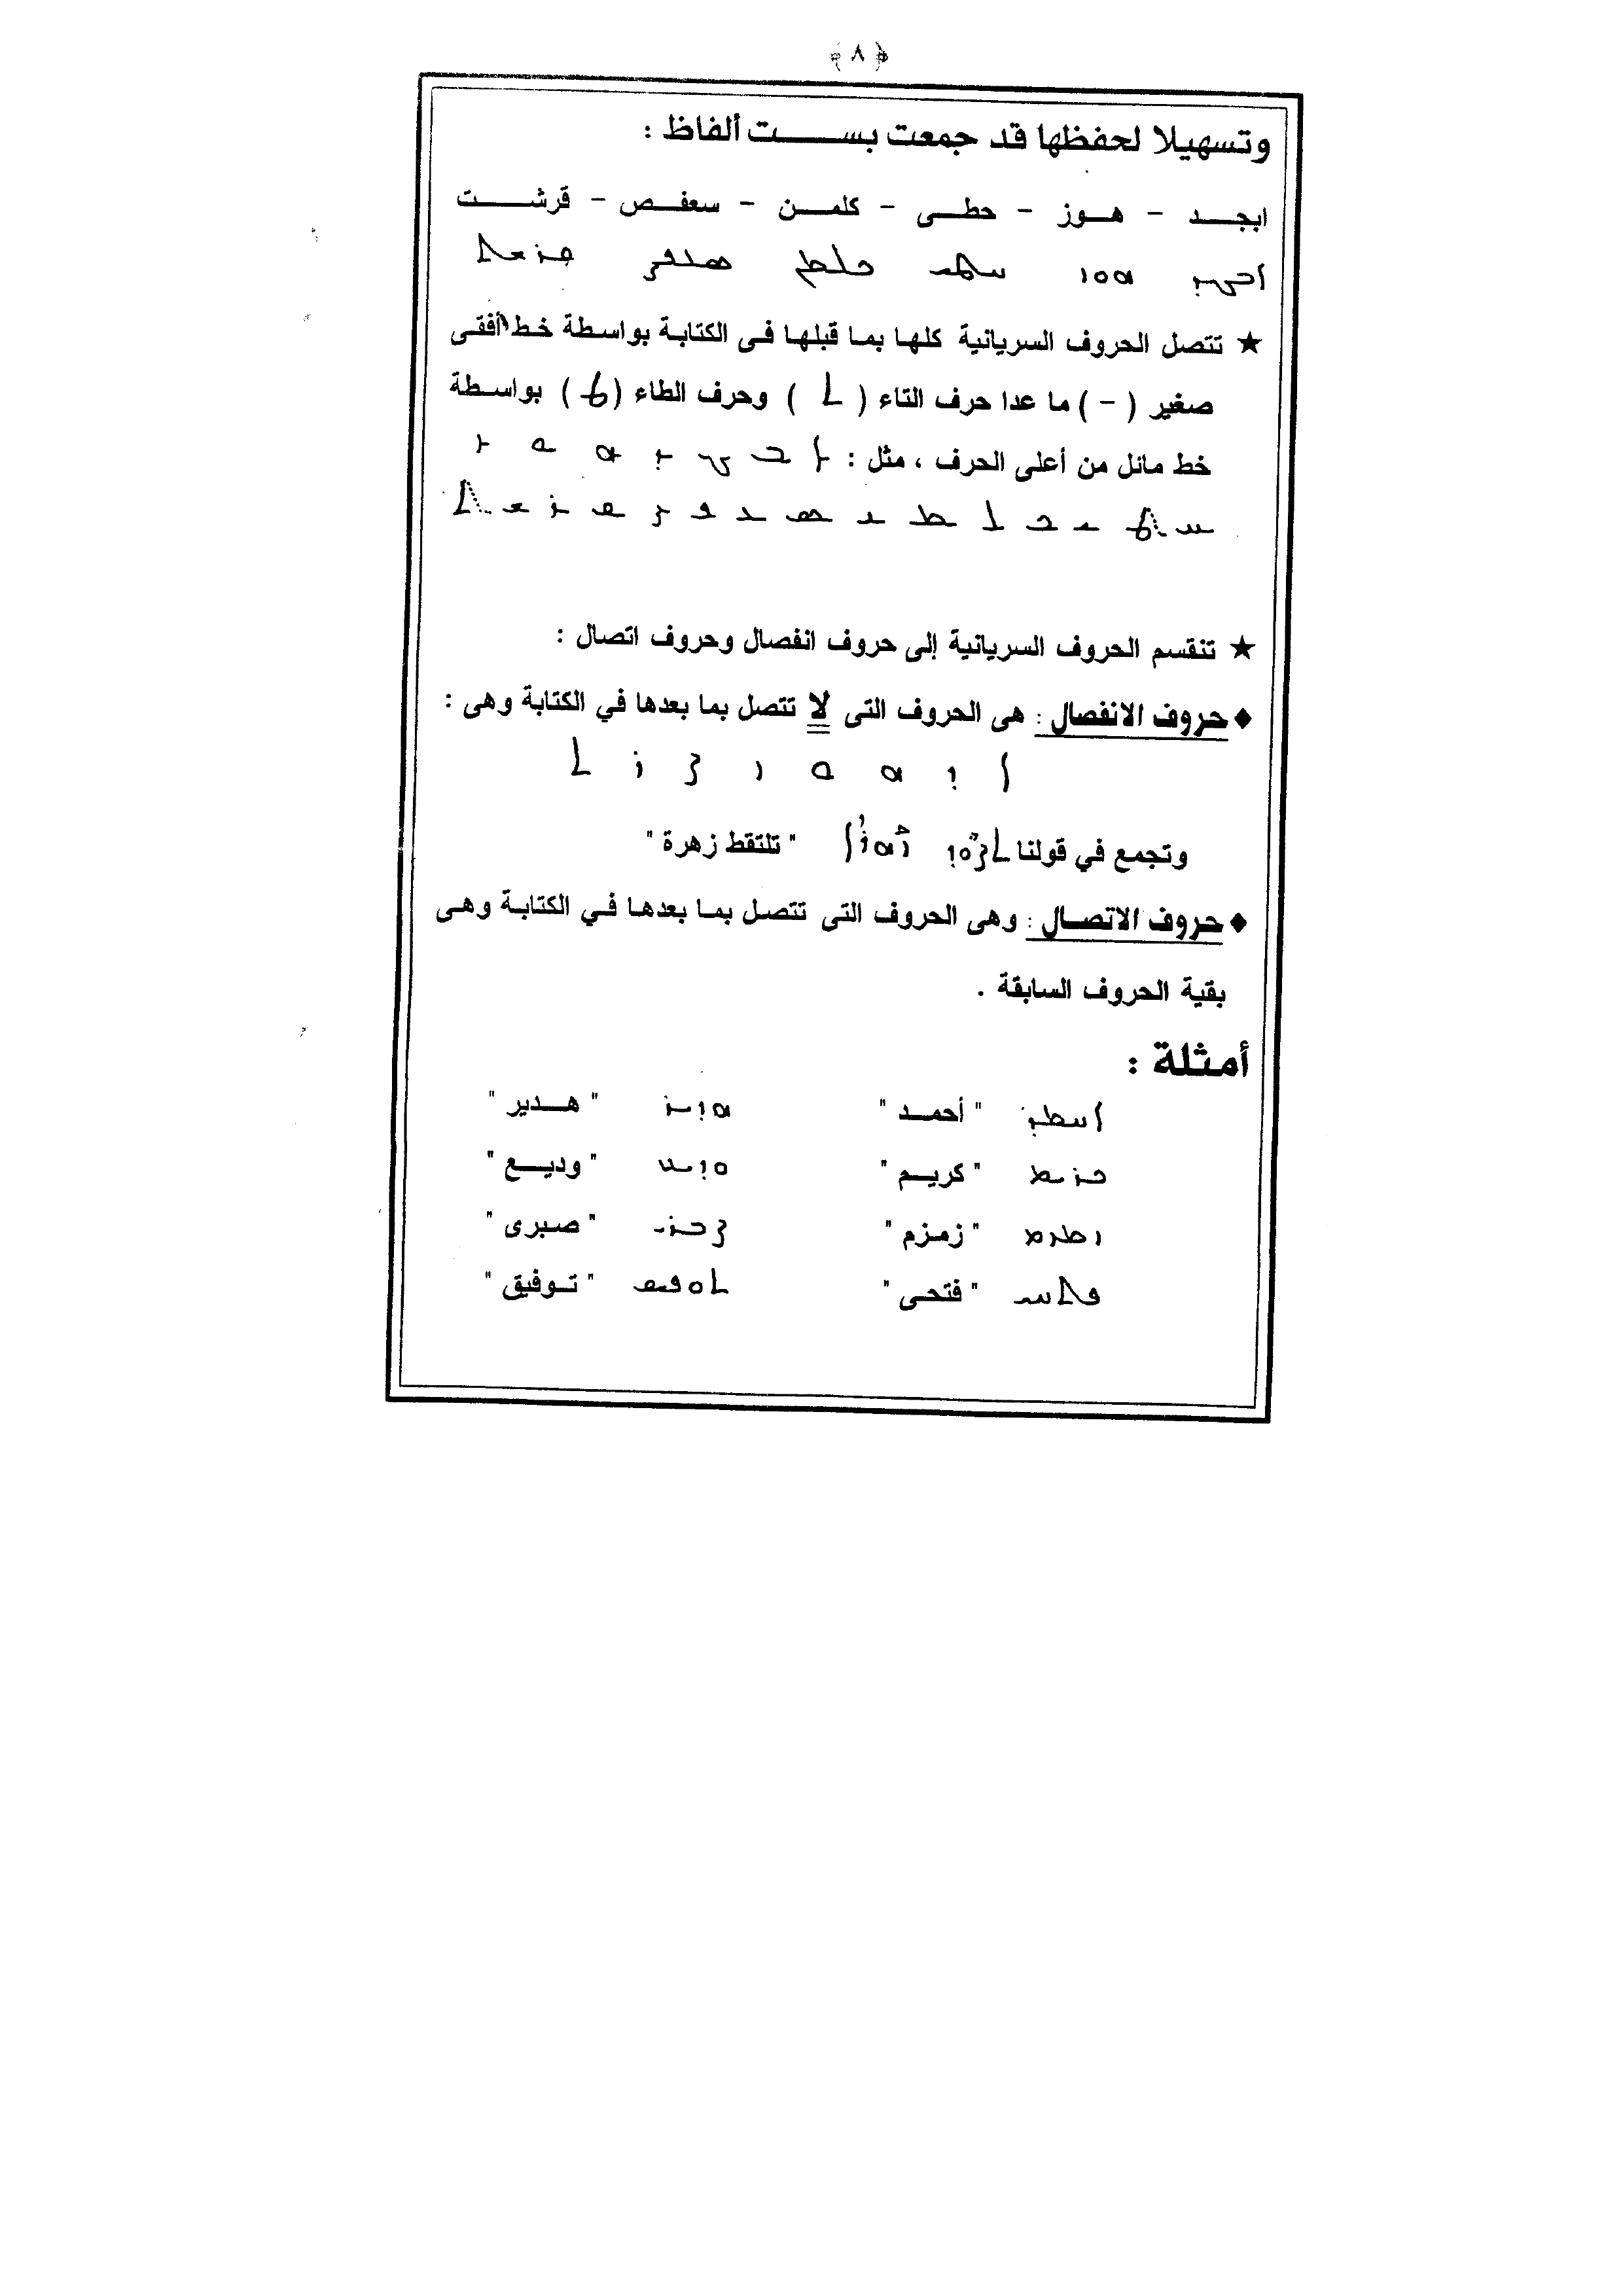 ﴿ ٨ ﴾
وتسهيلا لحفظها قد جمعت بست ألفاظ :
ابجد - هوز - حطى - كلمن - سعفص - قرشت
ܐܒܓܕ ܗܘܙ ܚܛܝ ܟܠܡܢ ܣܥܦܨ ܩܪܫܬ
★ تتصل الحروف السريانية كلها بما قبلها فى الكتابة بواسطة خط أفقى
صغير ( - ) ما عدا حرف التاء ( ܬ ) وحرف الطاء (ܛ) بواسطة
خط مائل من أعلى الحرف ، مثل : ـܐ ـܒ ـܓ ـܕ ـܗ ـܘ ـܙ
ـܚ ـܛ ـܝ ـܟ ـܠ ـܡ ـܢ ـܣ ـܥ ـܦ ـܨ ـܩ ـܪ ـܫ ـܬ
★ تنقسم الحروف السريانية إلى حروف انفصال وحروف اتصال :
♦ حروف الانفصال : هى الحروف التى لا تتصل بما بعدها في الكتابة وهى :
ܐ ܕ ܗ ܘ ܙ ܨ ܪ ܬ
وتجمع في قولنا " تلتقط زهرة "
♦ حروف الاتصال : وهى الحروف التى تتصل بما بعدها في الكتابة وهى
بقية الحروف السابقة .
أمثلة :
ܐܚܡܕ " أحمد " ܗܕܝܪ " هدير "
ܟܪܝܡ " كريم " ܘܕܝܥ " وديع "
ܙܡܙܡ " زمزم " ܨܒܪܝ " صبرى "
ܦܬܚܝ " فتحى " ܬܘܦܝܩ " توفيق "